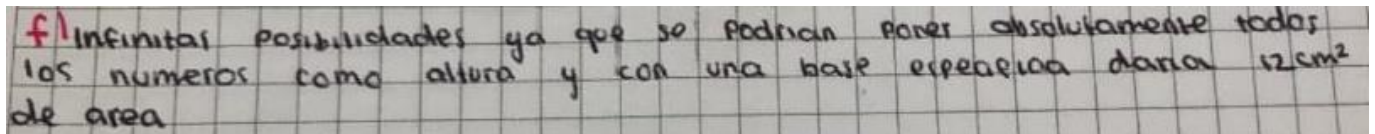 f) Infinitas posibilidades ya que se podrian poner absolutamente todos
los numeros como altura y con una base especifica daria 12 cm²
de area